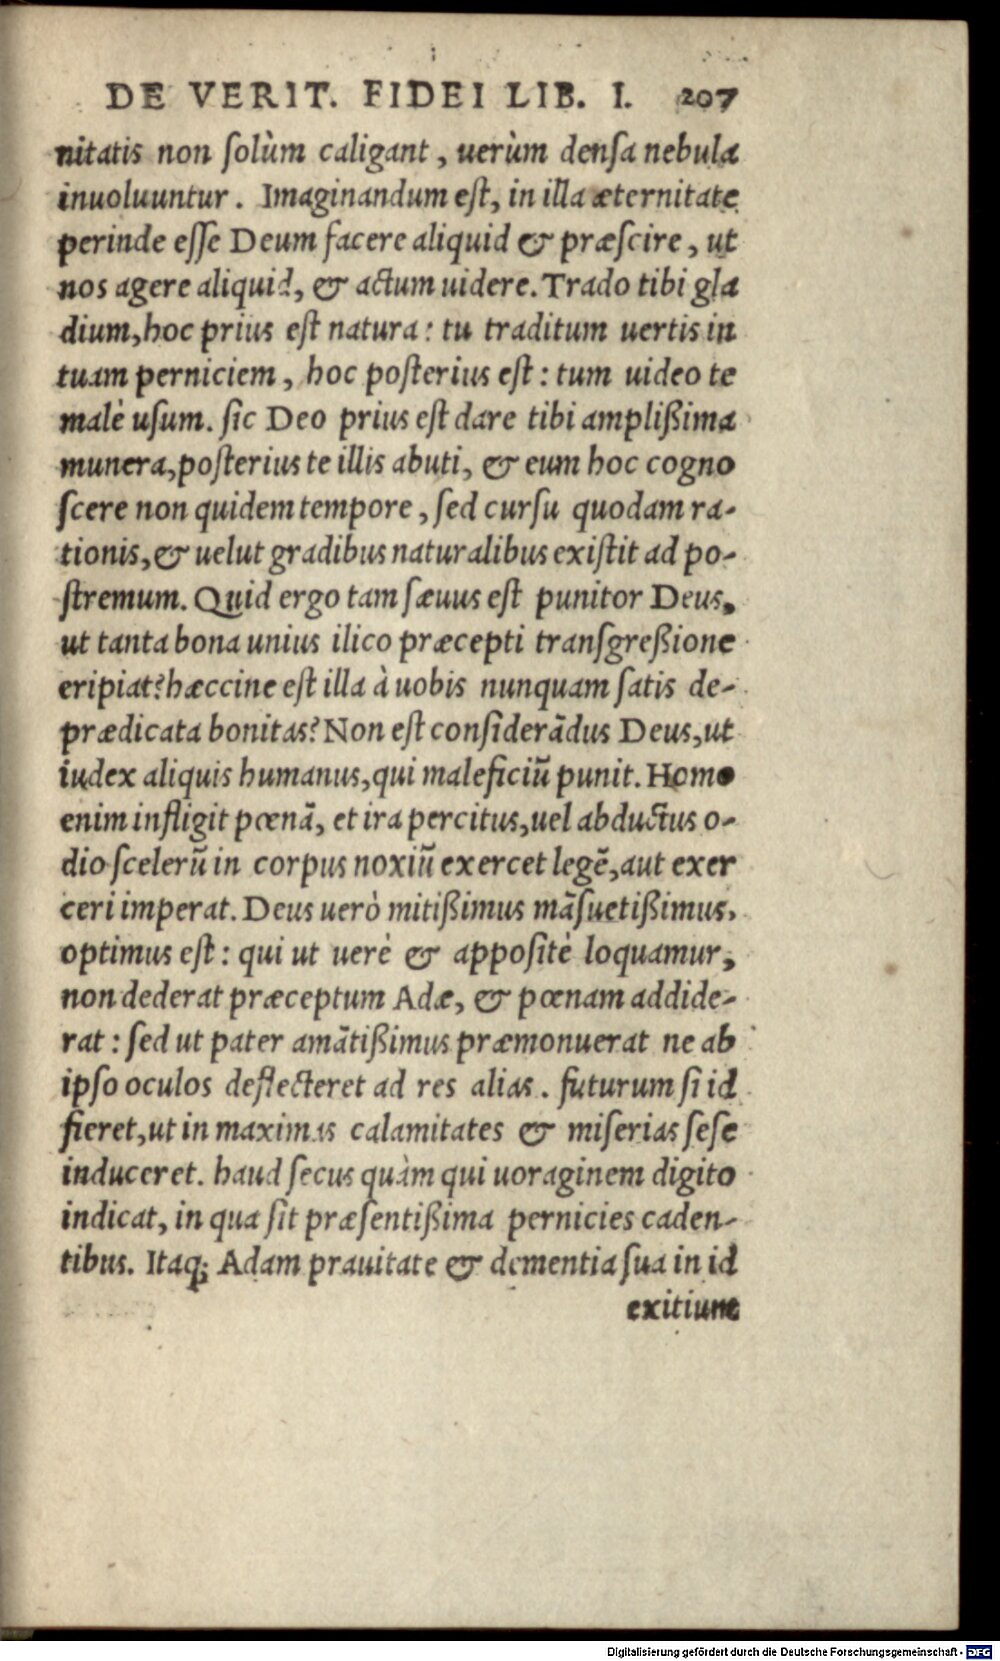 DE VERIT. FIDEI LIB. I. 207
nitatis non ſolùm caligant, uerùm denſa nebula
inuoluuntur. Imaginandum eſt, in illa æternitate
perinde eſſe Deum facere aliquid & præſcire, ut
nos agere aliquid, & actum uidere. Trado tibi gla
dium, hoc prius eſt natura: tu traditum uertis in
tuam perniciem, hoc poſterius eſt: tum uideo te
malè uſum. ſic Deo prius eſt dare tibi ampliſſima
munera, poſterius te illis abuti, & eum hoc cogno
ſcere non quidem tempore, ſed curſu quodam ra-
tionis, & uelut gradibus naturalibus exiſtit ad po-
ſtremum. Quid ergo tam ſæuus eſt punitor Deus,
ut tanta bona unius ilico præcepti tranſgreßione
eripiat? hæccine eſt illa à uobis nunquam ſatis de-
prædicata bonitas? Non eſt conſiderãdus Deus, ut
iudex aliquis humanus, qui maleficiũ punit. Homo
enim infligit pœnã, et ira percitus, uel abductus o-
dio ſcelerũ in corpus noxiũ exercet legẽ, aut exer
ceri imperat. Deus uerò mitißimus mãſuetißimus,
optimus eſt: qui ut uerè & appoſitè loquamur,
non dederat præceptum Adæ, & pœnam addide-
rat: ſed ut pater amãtißimus præmonuerat ne ab
ipſo oculos deflecteret ad res alias. futurum ſi id
fieret, ut in maximas calamitates & miſerias ſeſe
induceret. haud ſecus quàm qui uoraginem digito
indicat, in qua ſit præſentißima pernicies caden-
tibus. Itaq; Adam prauitate & dementia ſua in id
exitium
Digitalisierung gefördert durch die Deutsche Forschungsgemeinschaft - DFG